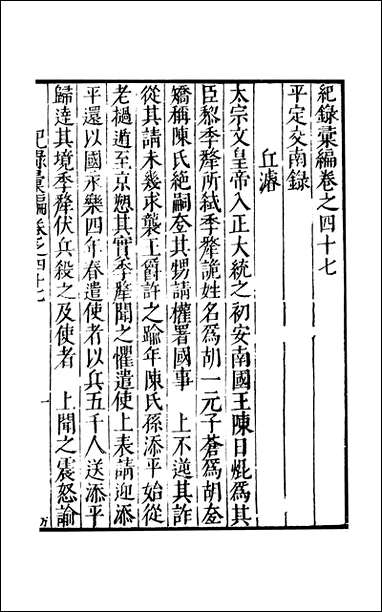 紀錄彙編卷之四十七
平定交南錄
丘濬
太宗文皇帝入正大統之初安南國王陳日焜爲其
臣黎季犛所弑季犛詭姓名爲胡一元子蒼爲胡𡗨
矯稱陳氏絕嗣𡗨其甥請權署國事 上不逆其詐
從其請未幾求襲王爵許之踰年陳氏孫添平始從
老撾遁至京愬其實季犛聞之懼遣使上表請迎添
平還以國永樂四年春遣使者以兵五千人送添平
歸達其境季犛伏兵殺之及使者 上聞之震怒諭
紀錄彙編卷之四十七 一